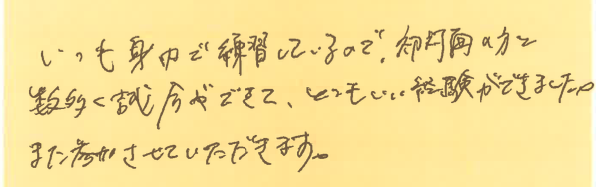 いつも身内で練習しているので、初対面の方と
数多く試合ができて、とてもいい経験ができました。
また参加させていただきます。